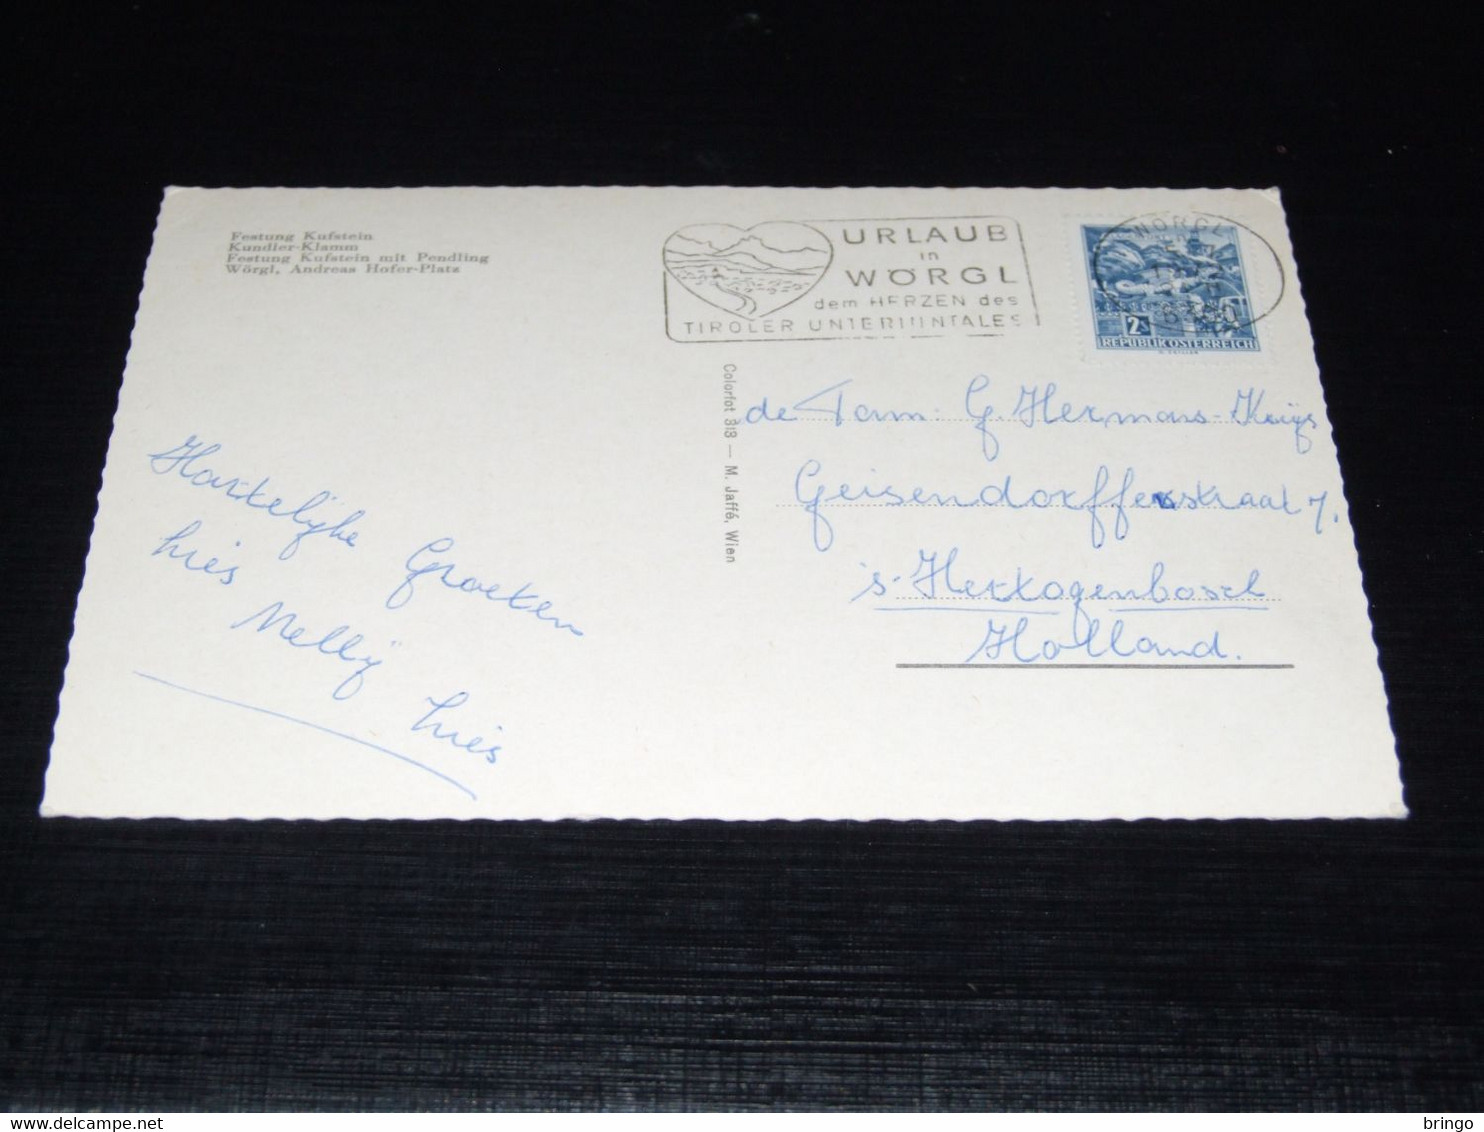 Festung Kufstein
Kundler-Klamm
Festung Kufstein mit Pendling
Wörgl, Andreas Hofer-Platz
URLAUB
in
WÖRGL
dem HERZEN des
TIROLER UNTERINNTALES
WÖRGL
6300
2S
REPUBLIK ÖSTERREICH
Colorfot 313 — M. Jaffé, Wien
de Fam: G. Hermans-Kuijs
Geisendorfferstraat 7.
's-Hertogenbosch
Holland.
Hartelijke Groeten
Nelly
bringo